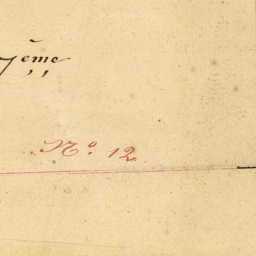 7ème
Nº. 12